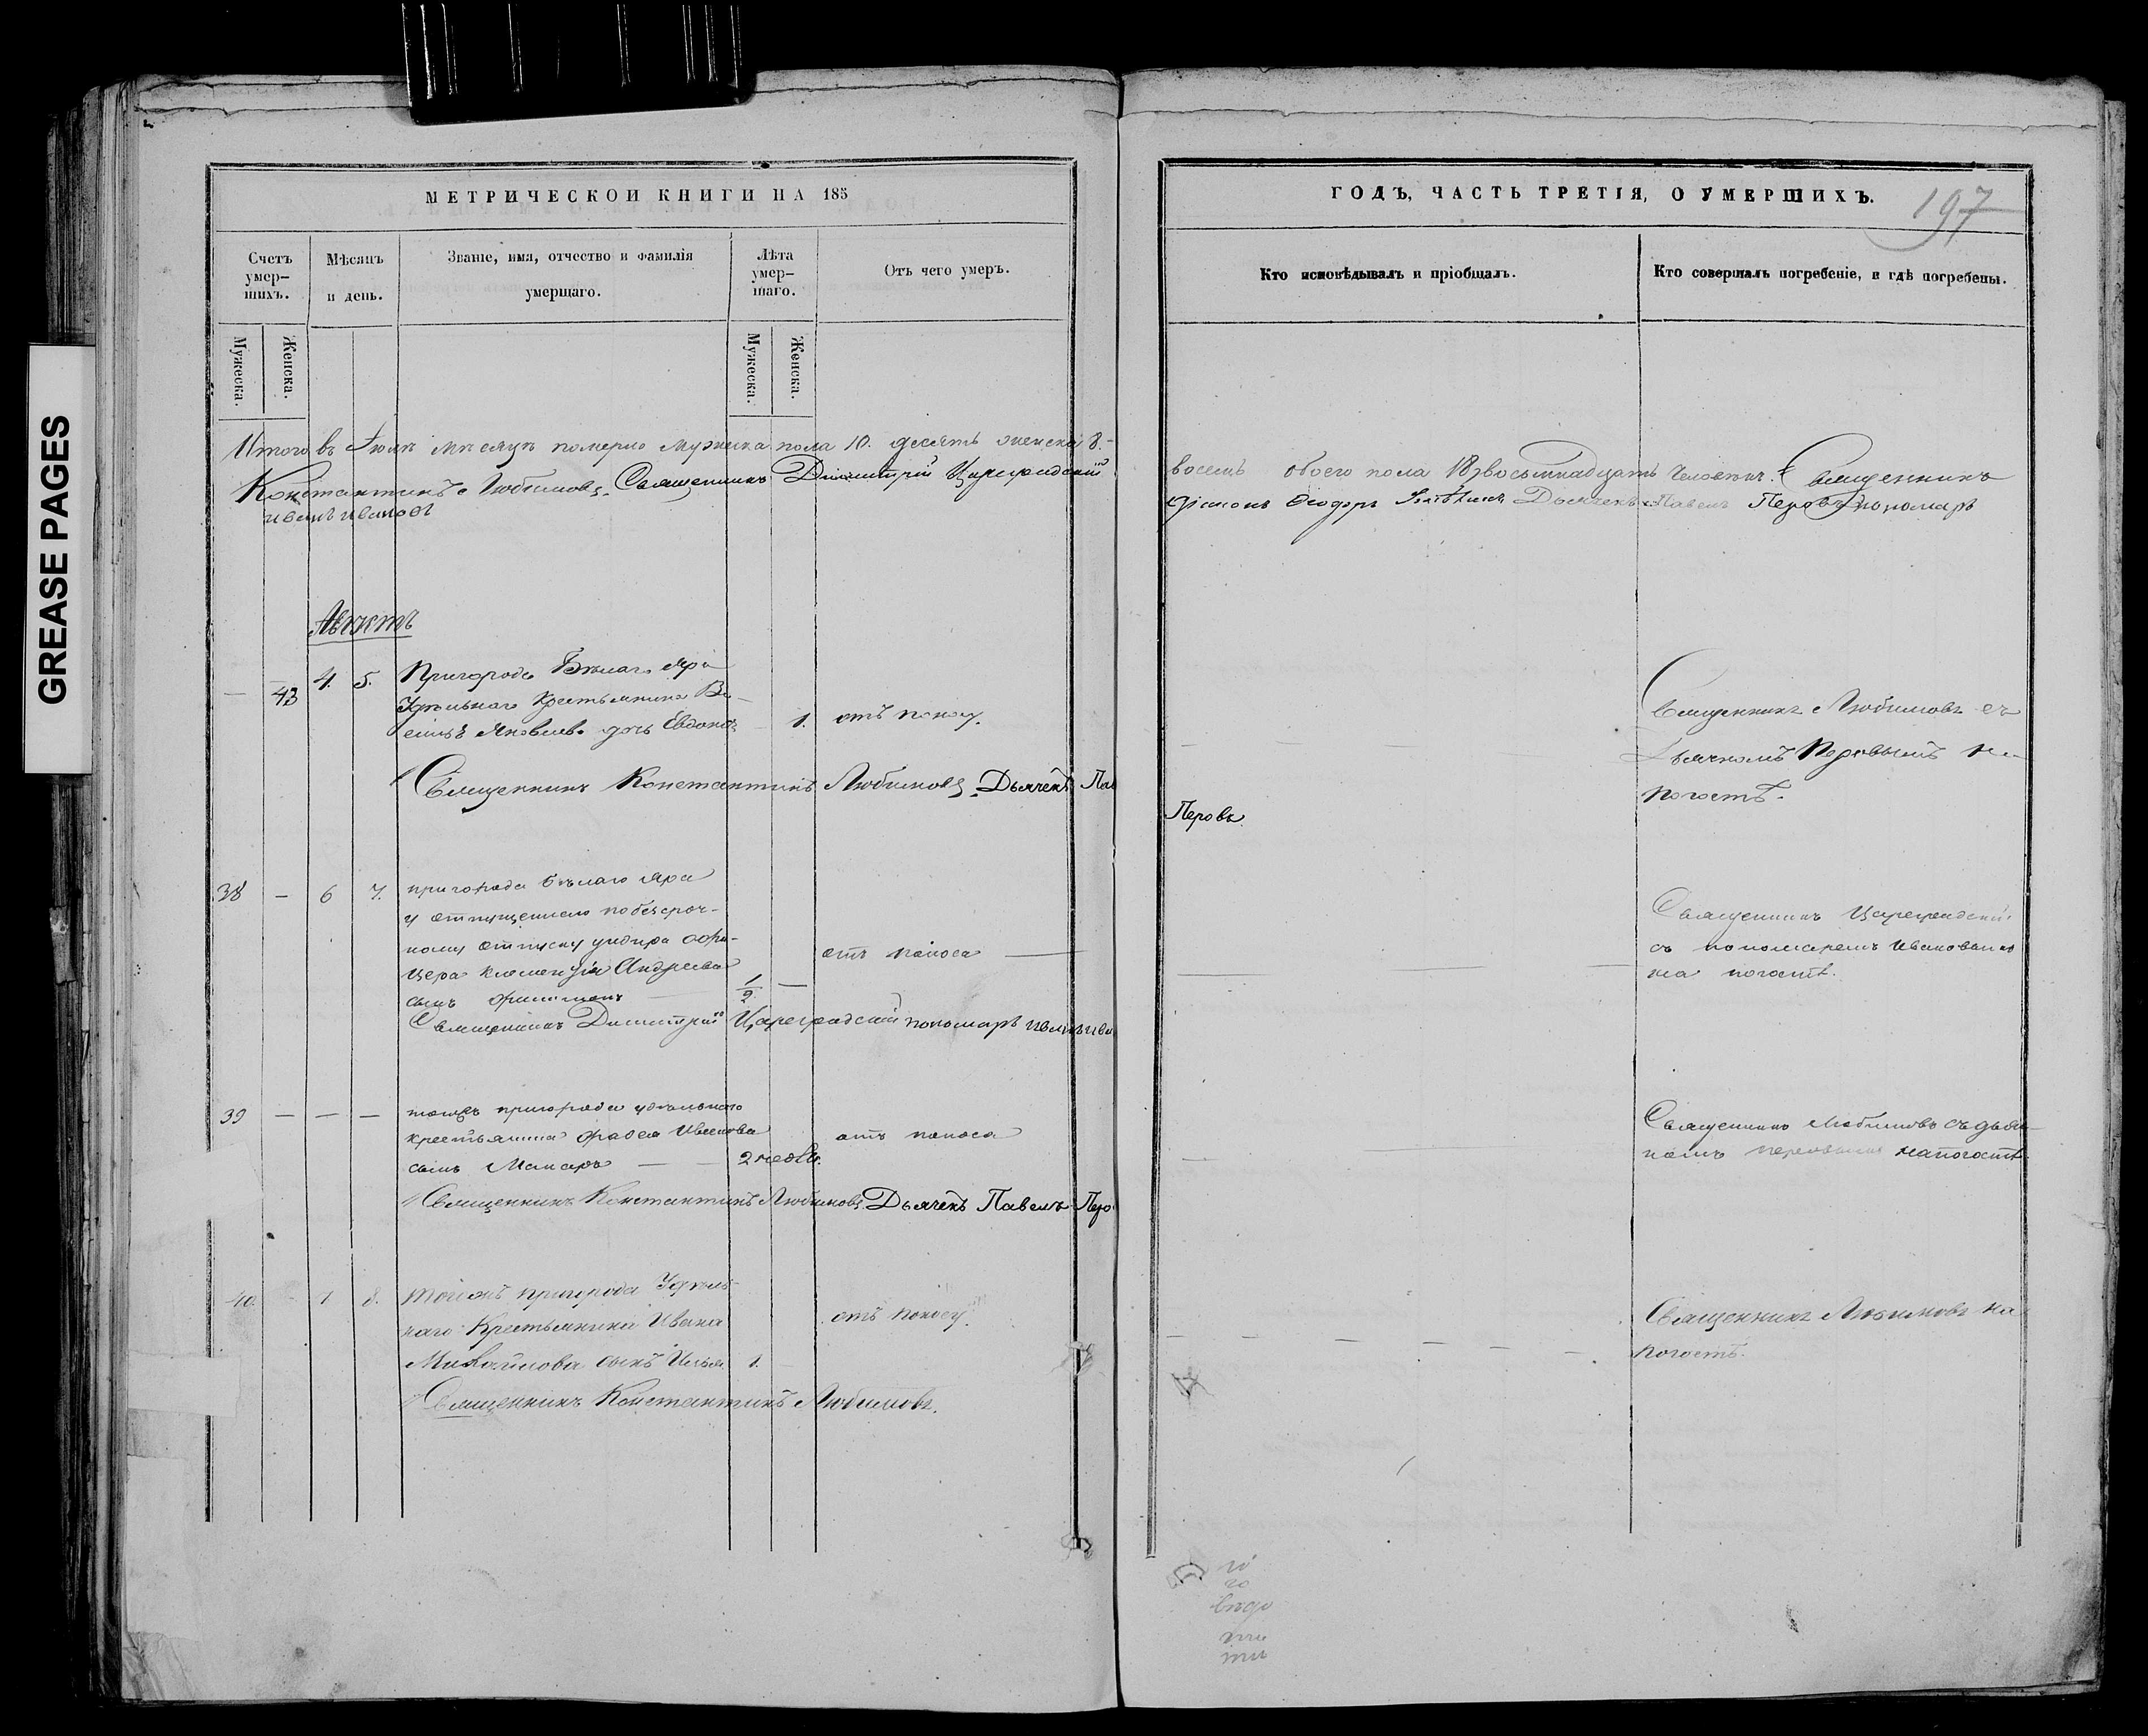 GREASE PAGES
МЕТРИЧЕСКОЙ КНИГИ НА 185
ГОДЪ, ЧАСТЬ ТРЕТІЯ, О УМЕРШИХЪ.
197
Счетъ умер-
шихъ.
Мѣсяцъ
и день.
Званіе, имя, отчество и фамилія
умершаго.
Лѣта
умер-
шаго.
Отъ чего умеръ.
Кто исповѣдывалъ и пріобщалъ.
Кто совершалъ погребеніе, и гдѣ погребены.
Мужеска.
Женска.
Мужеска.
Женска.
Итого въ Іюлѣ мѣсяцѣ померло мужеска пола 10. десять женска 8.
восемь обоего пола 18 восьмнадцать человѣкъ. Священникъ
Константинъ Любимовъ. Священникъ Димитрій Цареградскій
Діаконъ Ѳеодоръ Дьячекъ Павелъ Перовъ Пономарь
Иванъ Ивановъ
Августъ
43 4. 5. Пригорода Бѣлаго Яра
Удѣльнаго Крестьянина Ва-
силья Яковлева дочь Евдокія 1. отъ поносу.
Священникъ Любимовъ съ
Дьячкомъ Перовымъ на
погостѣ.
Священникъ Константинъ Любимовъ. Дьячекъ Пав
Перовъ.
38 – 6 7. пригорода бѣлаго Яра
у отпущеннаго по безсроч-
ному отпуску ундира офи-
цера Андреева
сынъ 1/2 – отъ поноса
Священникъ Цареградскій
съ пономаремъ Ивановымъ
на погостѣ.
Священникъ Димитрій Цареградскій пономарь Иванъ Ива
39 – – – тогожъ пригорода удѣльнаго
крестьянина Иванова
сынъ Макаръ 2 недѣли. отъ поноса
Священникъ Любимовъ съ дьяч-
комъ Перовымъ на погостѣ.
Священникъ Константинъ Любимовъ Дьячекъ Павелъ Перо
40. – 1 8. Тогожъ пригорода Удѣль-
наго Крестьянина Ивана
Михайлова сынъ Илья 1. отъ поносу.
Священникъ Любимовъ на
погостѣ.
Священникъ Константинъ Любимовъ.